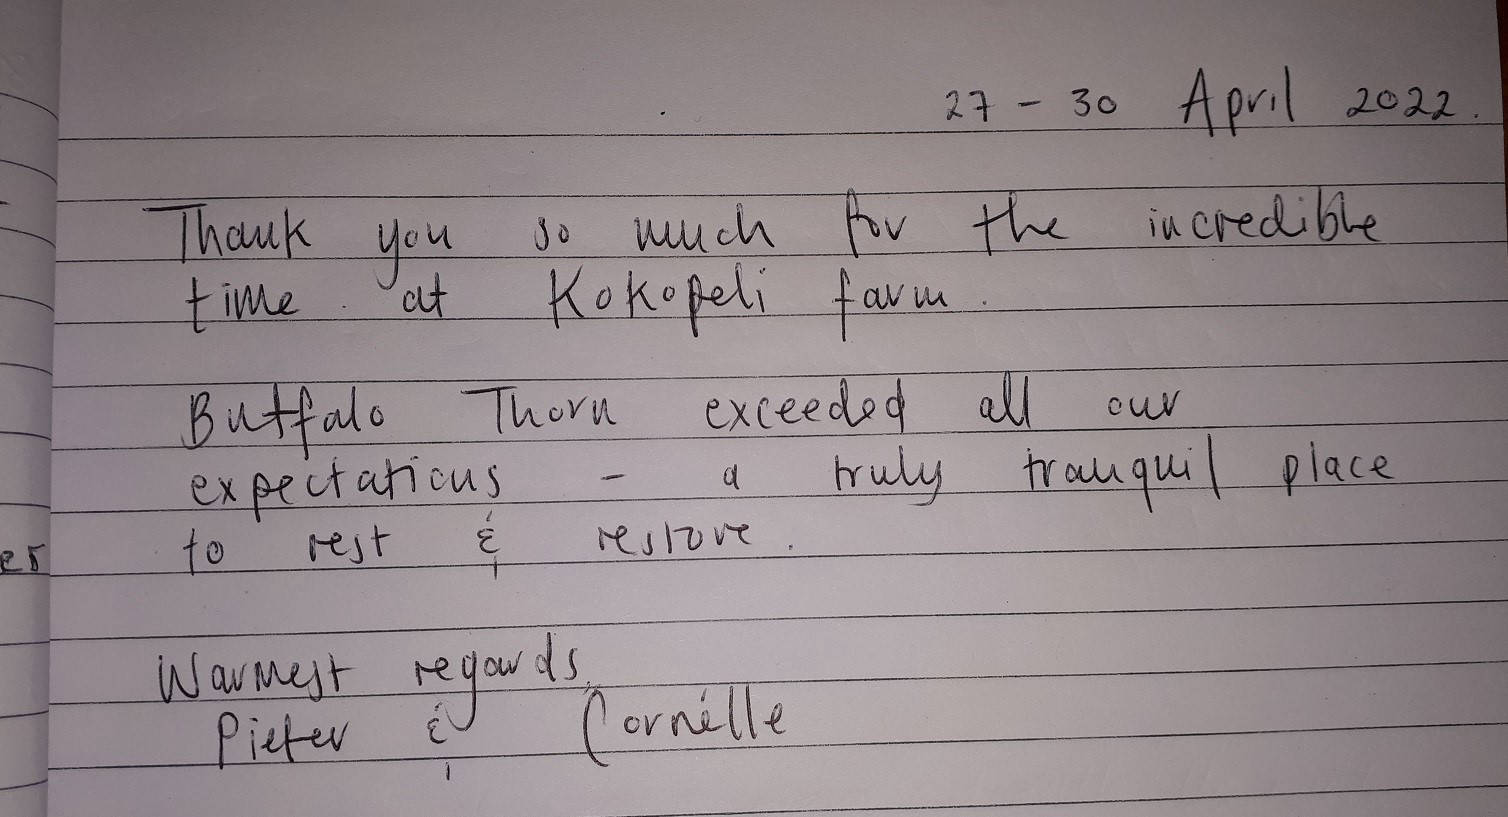 27 - 30 April 2022.
Thank you so much for the incredible
time at Kokopeli farm.
Buffalo Thorn exceeded all our
expectations - a truly tranquil place
to rest & restore.
Warmest regards,
Pieter & Cornélle